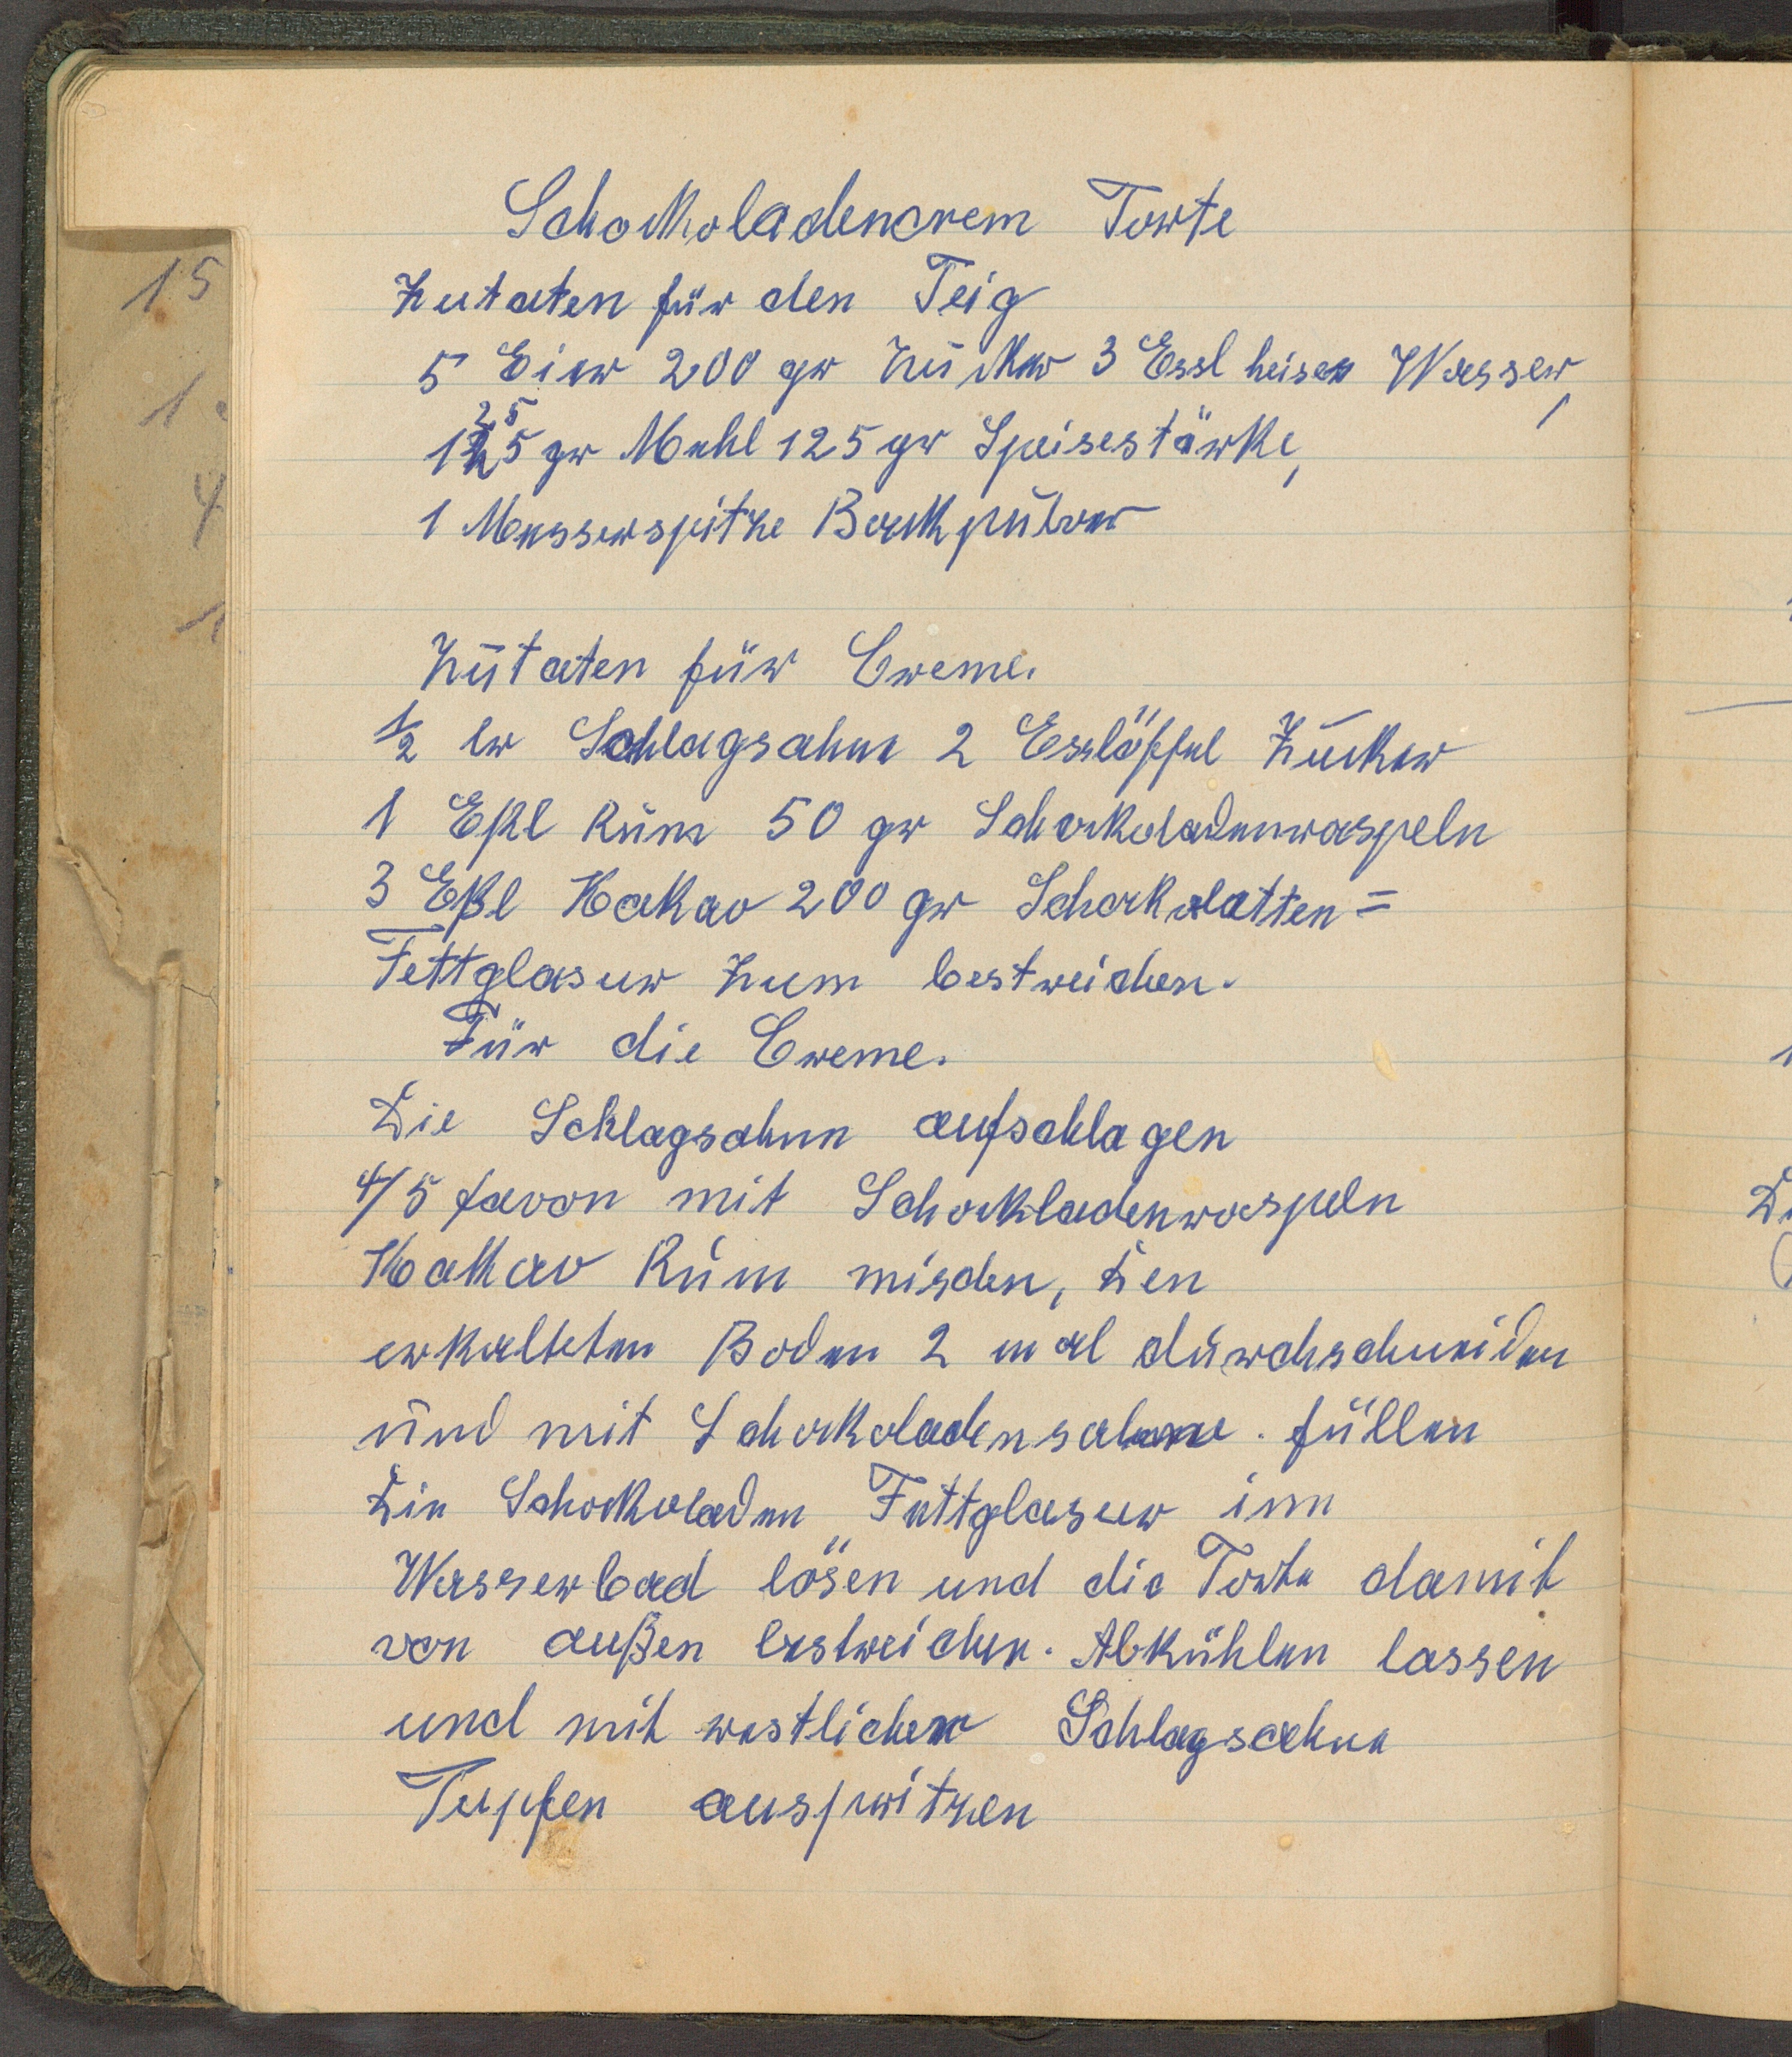 Schockoladencrem Torte
Zutaten für den Teig
5 Eier 200 gr Zucker 3 Essl heises Wasser,
125 gr Mehl 125 gr Speisestärke,
1 Messerspitze Backpulver
Zutaten für Creme.
1/2 lr Schlagsahne 2 Esslöffel Zucker
1 Eßl Rum 50 gr Schockoladenraspeln
3 Eßl Kakao 200 gr Schockolatten=
Fettglasur zum bestreichen.
Für die Creme.
Die Schlagsahne aufschlagen
4/5 davon mit Schockladenraspeln
Kakao Rum mischen, Den
erkalteten Boden 2 mal durchschneiden
und mit Schockoladensahne. füllen
Die Schockoladen Fettglasur im
Wasserbad lösen und die Torte damit
von außen bestreichen. Abkühlen lassen
und mit restlicher Schlagsahne
Tupfen auspritzen
15
1
4
1